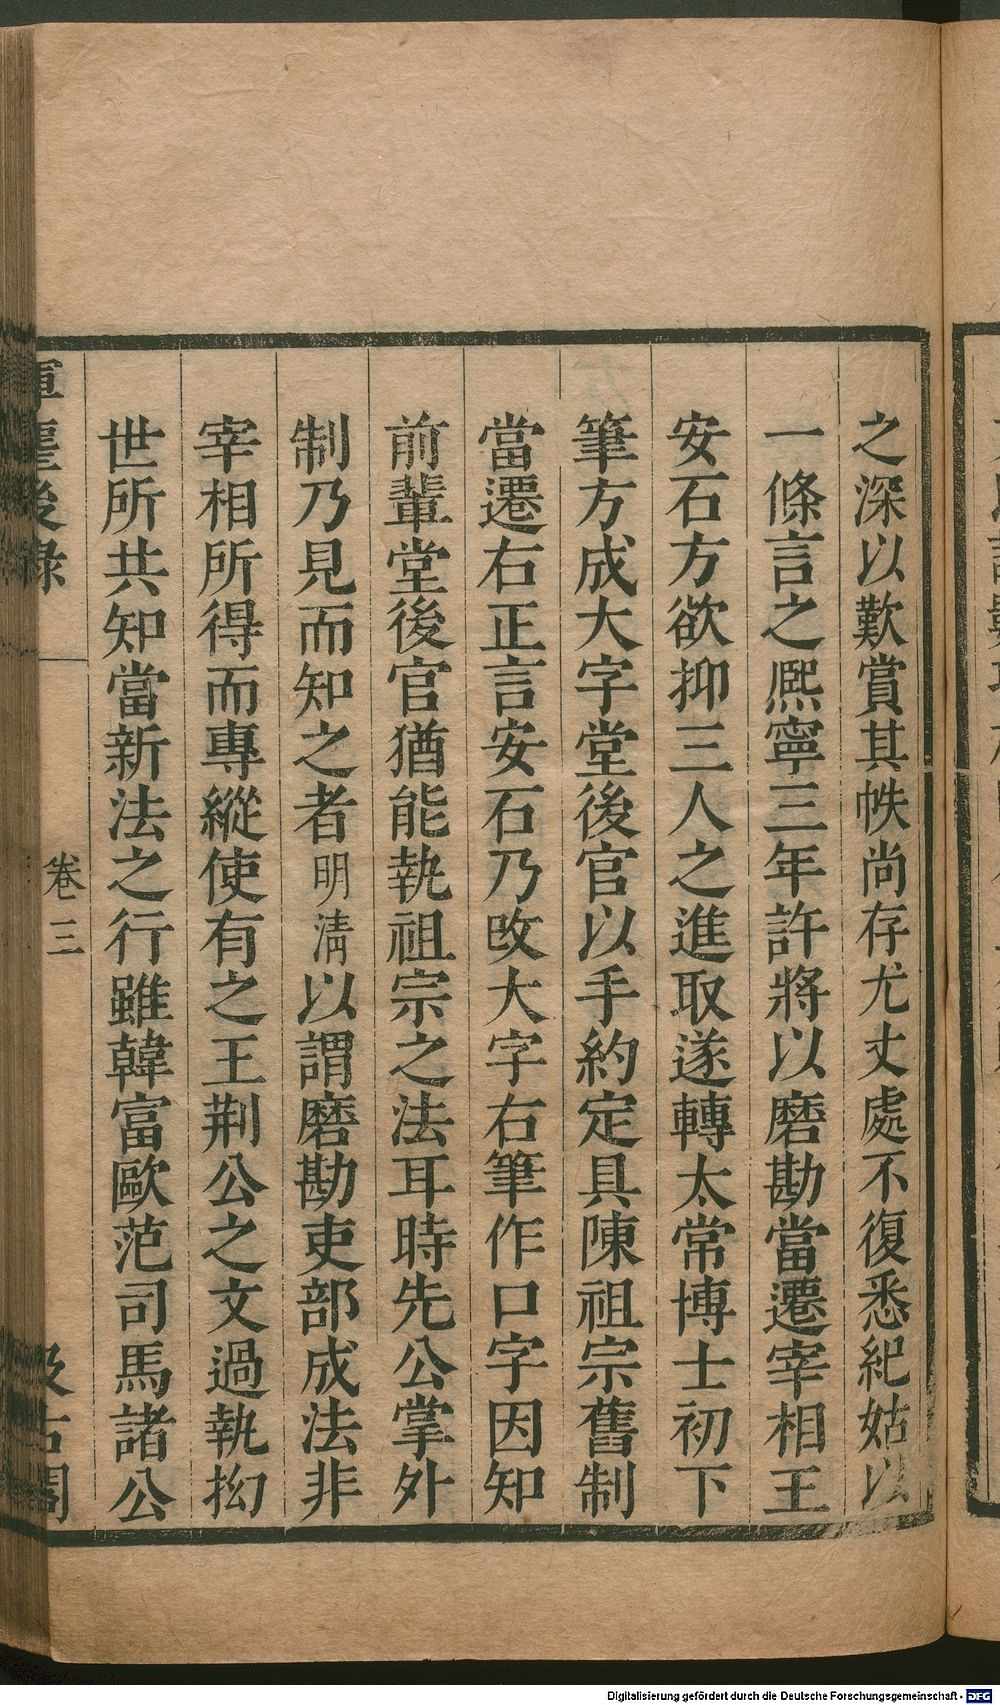 之深以歎賞其帙尚存尤丈處不復悉紀姑以
一條言之熈寧三年許將以磨勘當遷宰相王
安石方欲抑三人之進取遂轉太常博士初下
筆方成大字堂後官以手約定具陳祖宗舊制
當遷右正言安石乃改大字右筆作口字因知
前輩堂後官猶能執祖宗之法耳時先公掌外
制乃見而知之者明淸以謂磨勘吏部成法非
宰相所得而專縱使有之王荆公之文過執拗
世所共知當新法之行雖韓富歐范司馬諸公
後錄 卷三 汲古閣
Digitalisierung gefördert durch die Deutsche Forschungsgemeinschaft - DFG